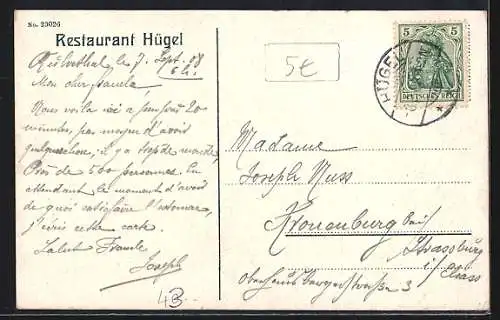 No. 23026
Restaurant Hügel
le 7. Sept. 08
6 h.
Mon cher
Nous voilà ici a
minutes, pas moyen d'avoir
quelquechose, il y a trop de monde,
Près de 500 personnes. En
attendant le moment d'avoir
de quoi satisfaire l'estomac,
j'écris cette carte.
Salut
Joseph
43
5€
5 5
DEUTSCHES REICH
HÜGEL
Madame
Joseph Nuss
Kronenburg bei
Strassburg
i/ Elsass
3